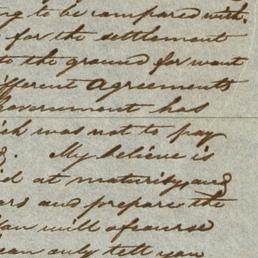 ng to be compared with.
for the settlement
to the ground for want
ifferent Agreements
Government has
ich was not to pay
My believe is
id at maturity, and
ars and prepare the
You will of course
can only tell you